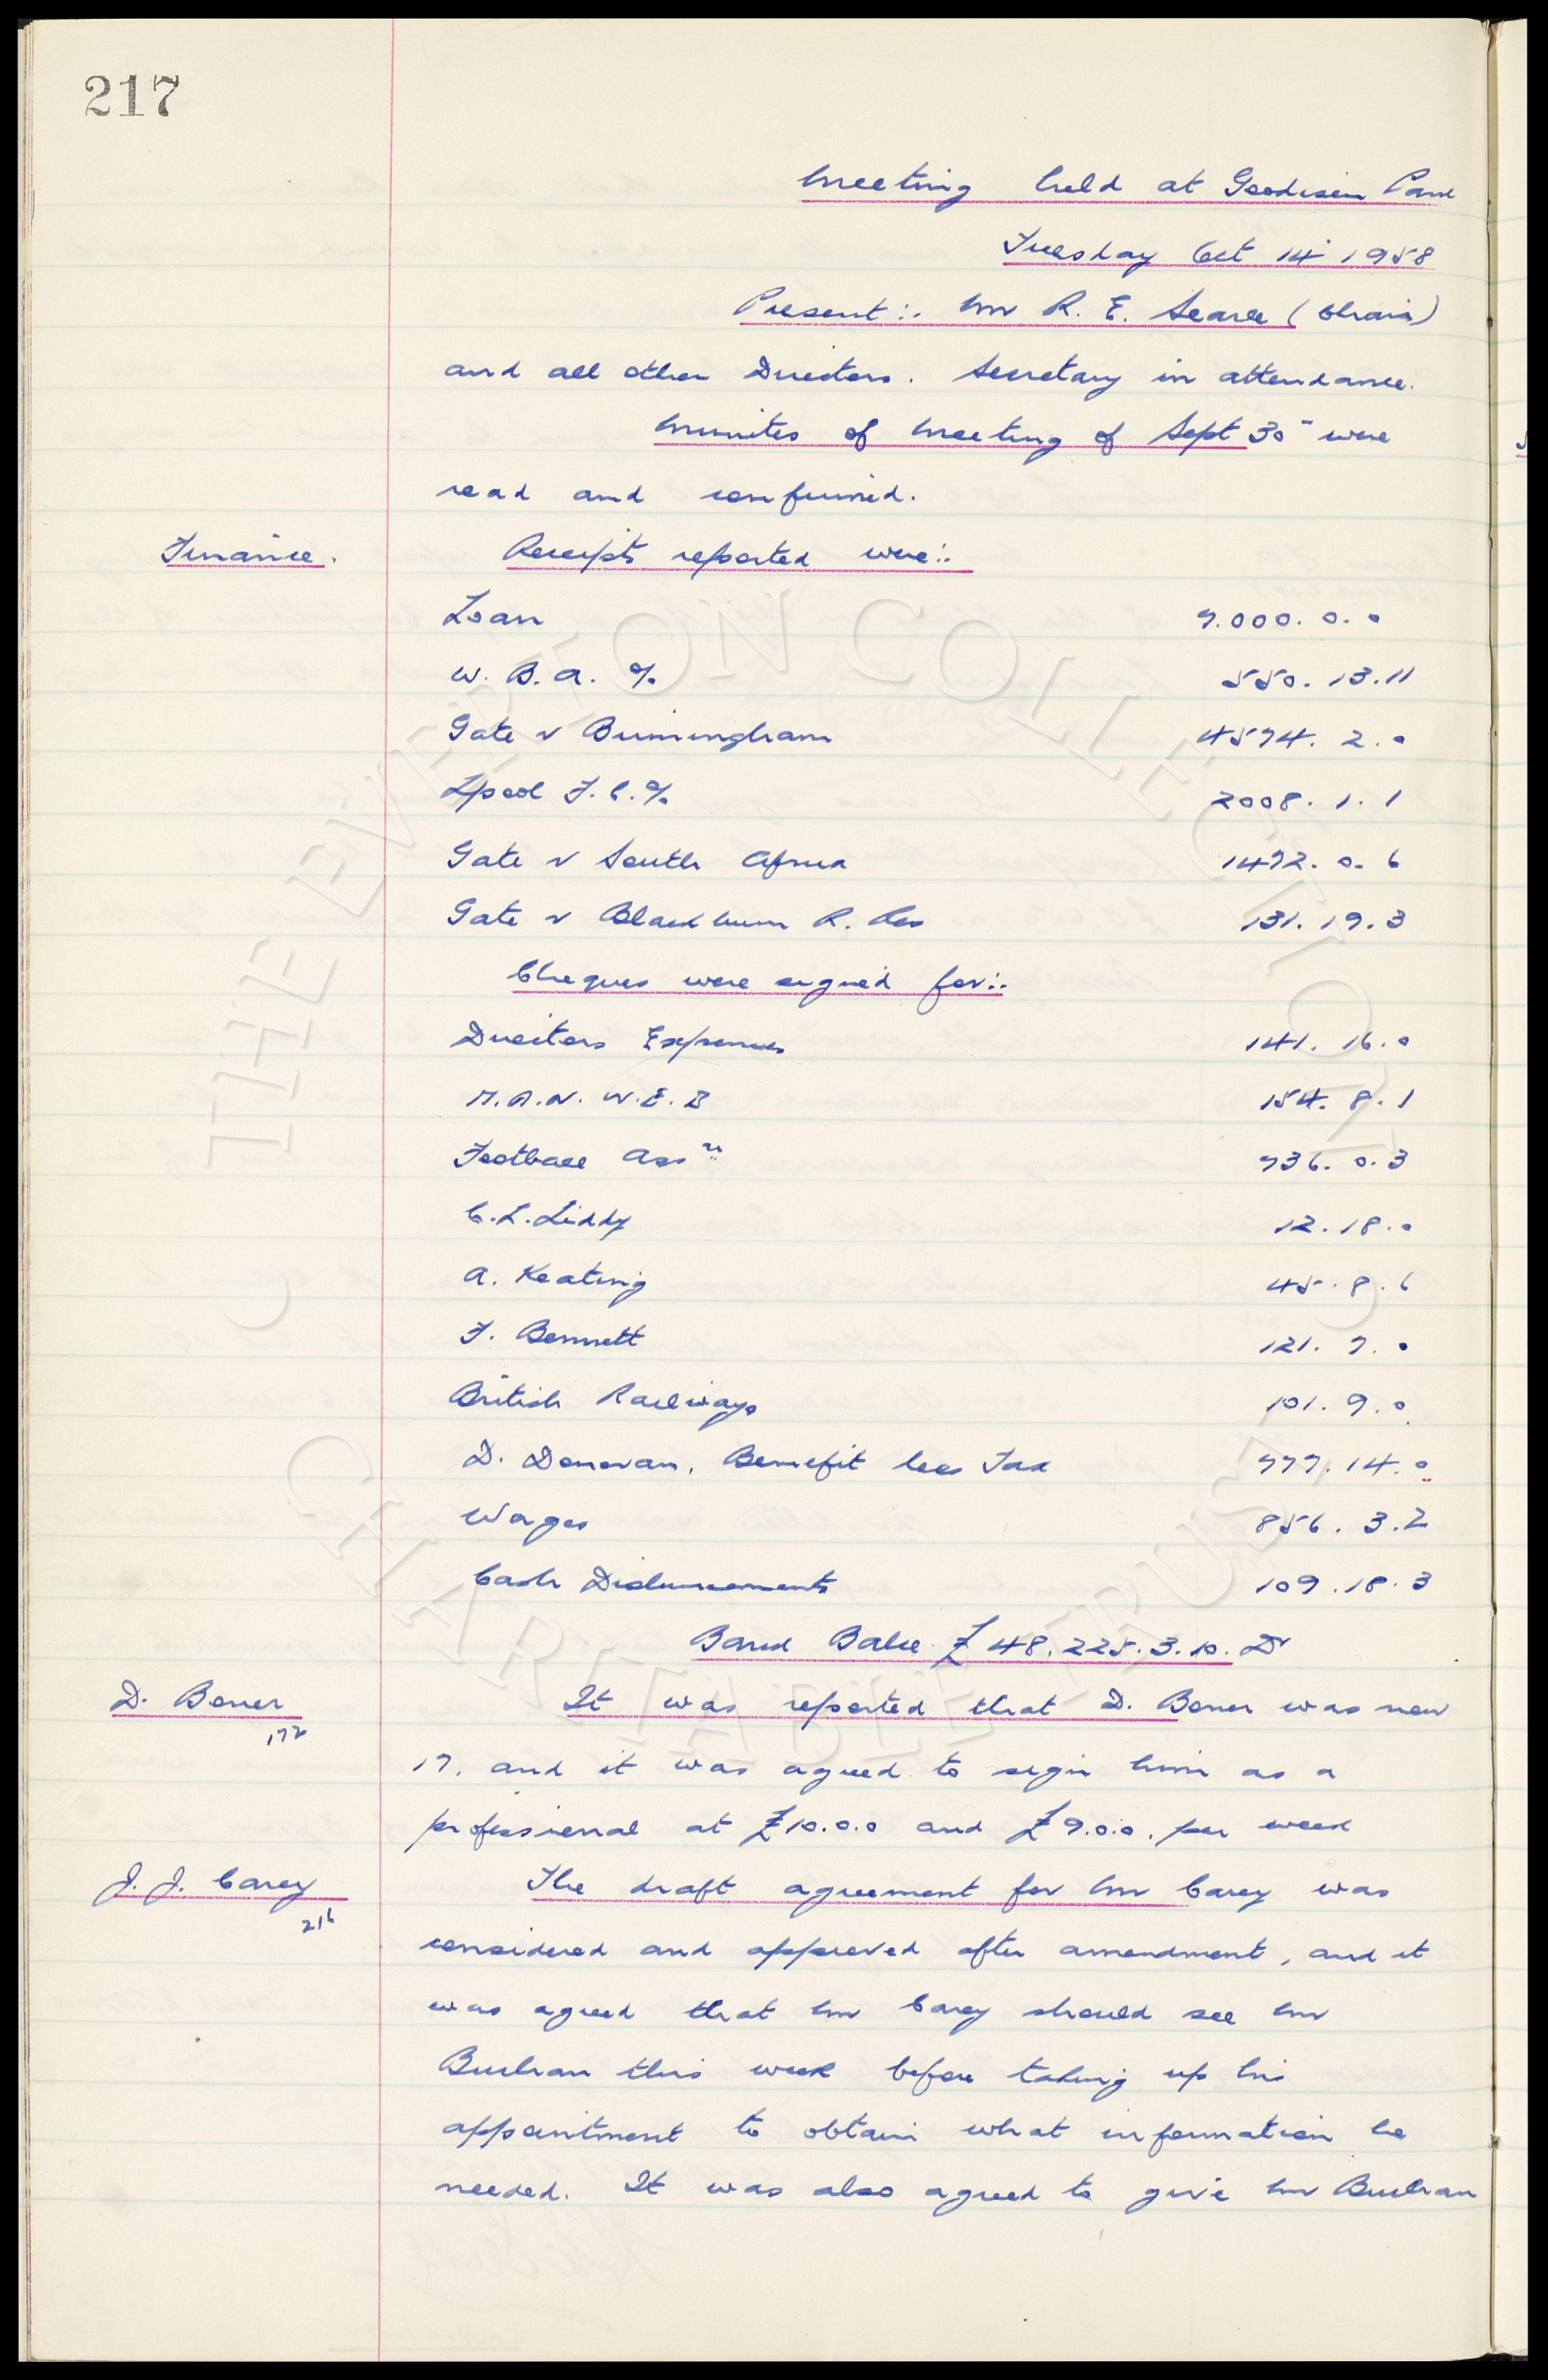 217
Meeting held at Goodison Park
Tuesday Oct 14" 1958
Present:- Mr R. E. Searle (Chair)
and all other Directors. Secretary in attendance.
Minutes of Meeting of Sept 30" were
read and confirmed.
Finance. Receipts reported were:-
Loan 7.000. 0. 0
W. B. A. % 550. 13. 11
Gate v Birmingham 4574. 2. 0
Lpool F. C. % 2008. 1. 1
Gate v South Africa 1472. 0. 6
Gate v Blackburn R. Res 131. 19. 3
Cheques were signed for:-
Directors Expenses 141. 16. 0
M.A.N.W.E.B 154. 8. 1
Football Assn 736. 0. 3
C. L. Liddy 12. 18. 0
A. Keating 45. 8. 6
F. Bennett 121. 7. 0
British Railways 101. 9. 0
D. Donovan, Benefit less Tax 777. 14. 0
Wages 856. 3. 2
Cash Disbursements 109. 18. 3
Bank Balce £48.225.3.10. Dr
D. Boner It was reported that D. Boner was now
172
17, and it was agreed to sign him as a
professional at £10.0.0 and £9.0.0. per week
J. J. Carey The draft agreement for Mr Carey was
216
considered and approved after amendment, and it
was agreed that Mr Carey should see Mr
Buchan this week before taking up his
appointment to obtain what information he
needed. It was also agreed to give Mr Buchan
THE EVERTON COLLECTION
CHARITABLE TRUST